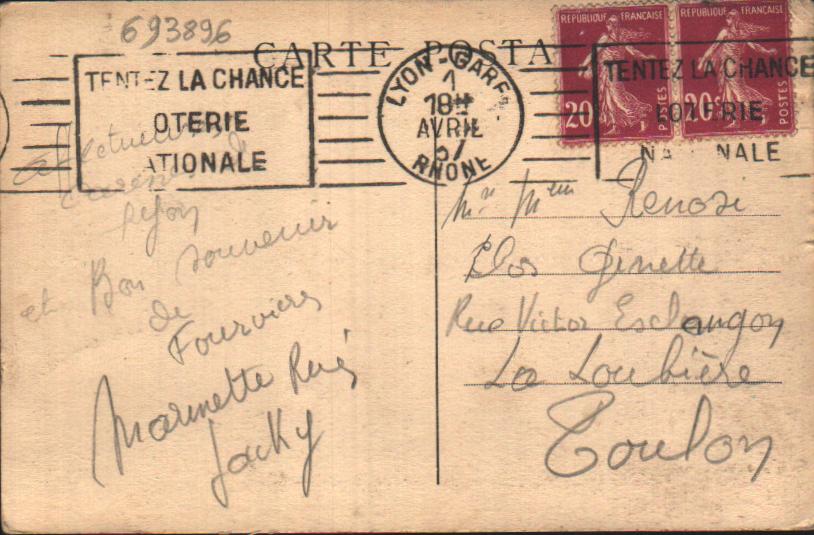 693896
CARTE POSTA
TENTEZ LA CHANCE
LOTERIE
NATIONALE
LYON-GARE
1
18H
AVRIL
RHONE
REPUBLIQUE FRANÇAISE
20c
POSTES
REPUBLIQUE FRANÇAISE
20c
POSTES
TENTEZ LA CHANCE
LOTERIE
NA NALE
Affectueuses
Lyon
et Bon souvenir
de
Fourvière
Marinette René
Jacky
Mr Mme Renosi
Clos Ginette
Rue Victor Esclangon
La Loubière
Toulon